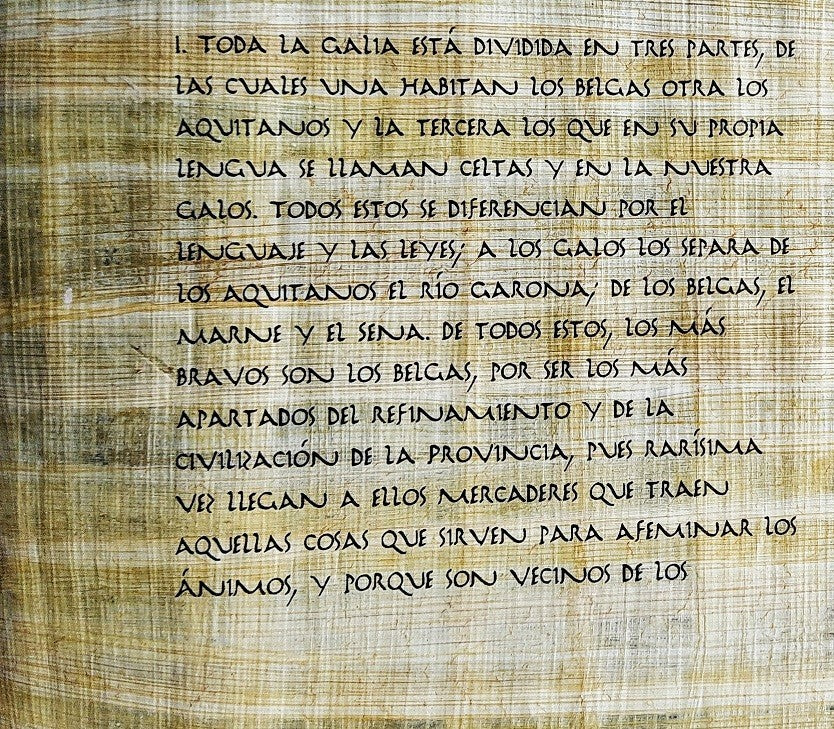 I. TODA LA GALIA ESTÁ DIVIDIDA EN TRES PARTES, DE
LAS CUALES UNA HABITAN LOS BELGAS OTRA LOS
AQUITANOS Y LA TERCERA LOS QUE EN SU PROPIA
LENGUA SE LLAMAN CELTAS Y EN LA NUESTRA
GALOS. TODOS ESTOS SE DIFERENCIAN POR EL
LENGUAJE Y LAS LEYES; A LOS GALOS LOS SEPARA DE
LOS AQUITANOS EL RÍO GARONA; DE LOS BELGAS, EL
MARNE Y EL SENA. DE TODOS ESTOS, LOS MÁS
BRAVOS SON LOS BELGAS, POR SER LOS MÁS
APARTADOS DEL REFINAMIENTO Y DE LA
CIVILIZACIÓN DE LA PROVINCIA, PUES RARÍSIMA
VEZ LLEGAN A ELLOS MERCADERES QUE TRAEN
AQUELLAS COSAS QUE SIRVEN PARA AFEMINAR LOS
ÁNIMOS, Y PORQUE SON VECINOS DE LOS